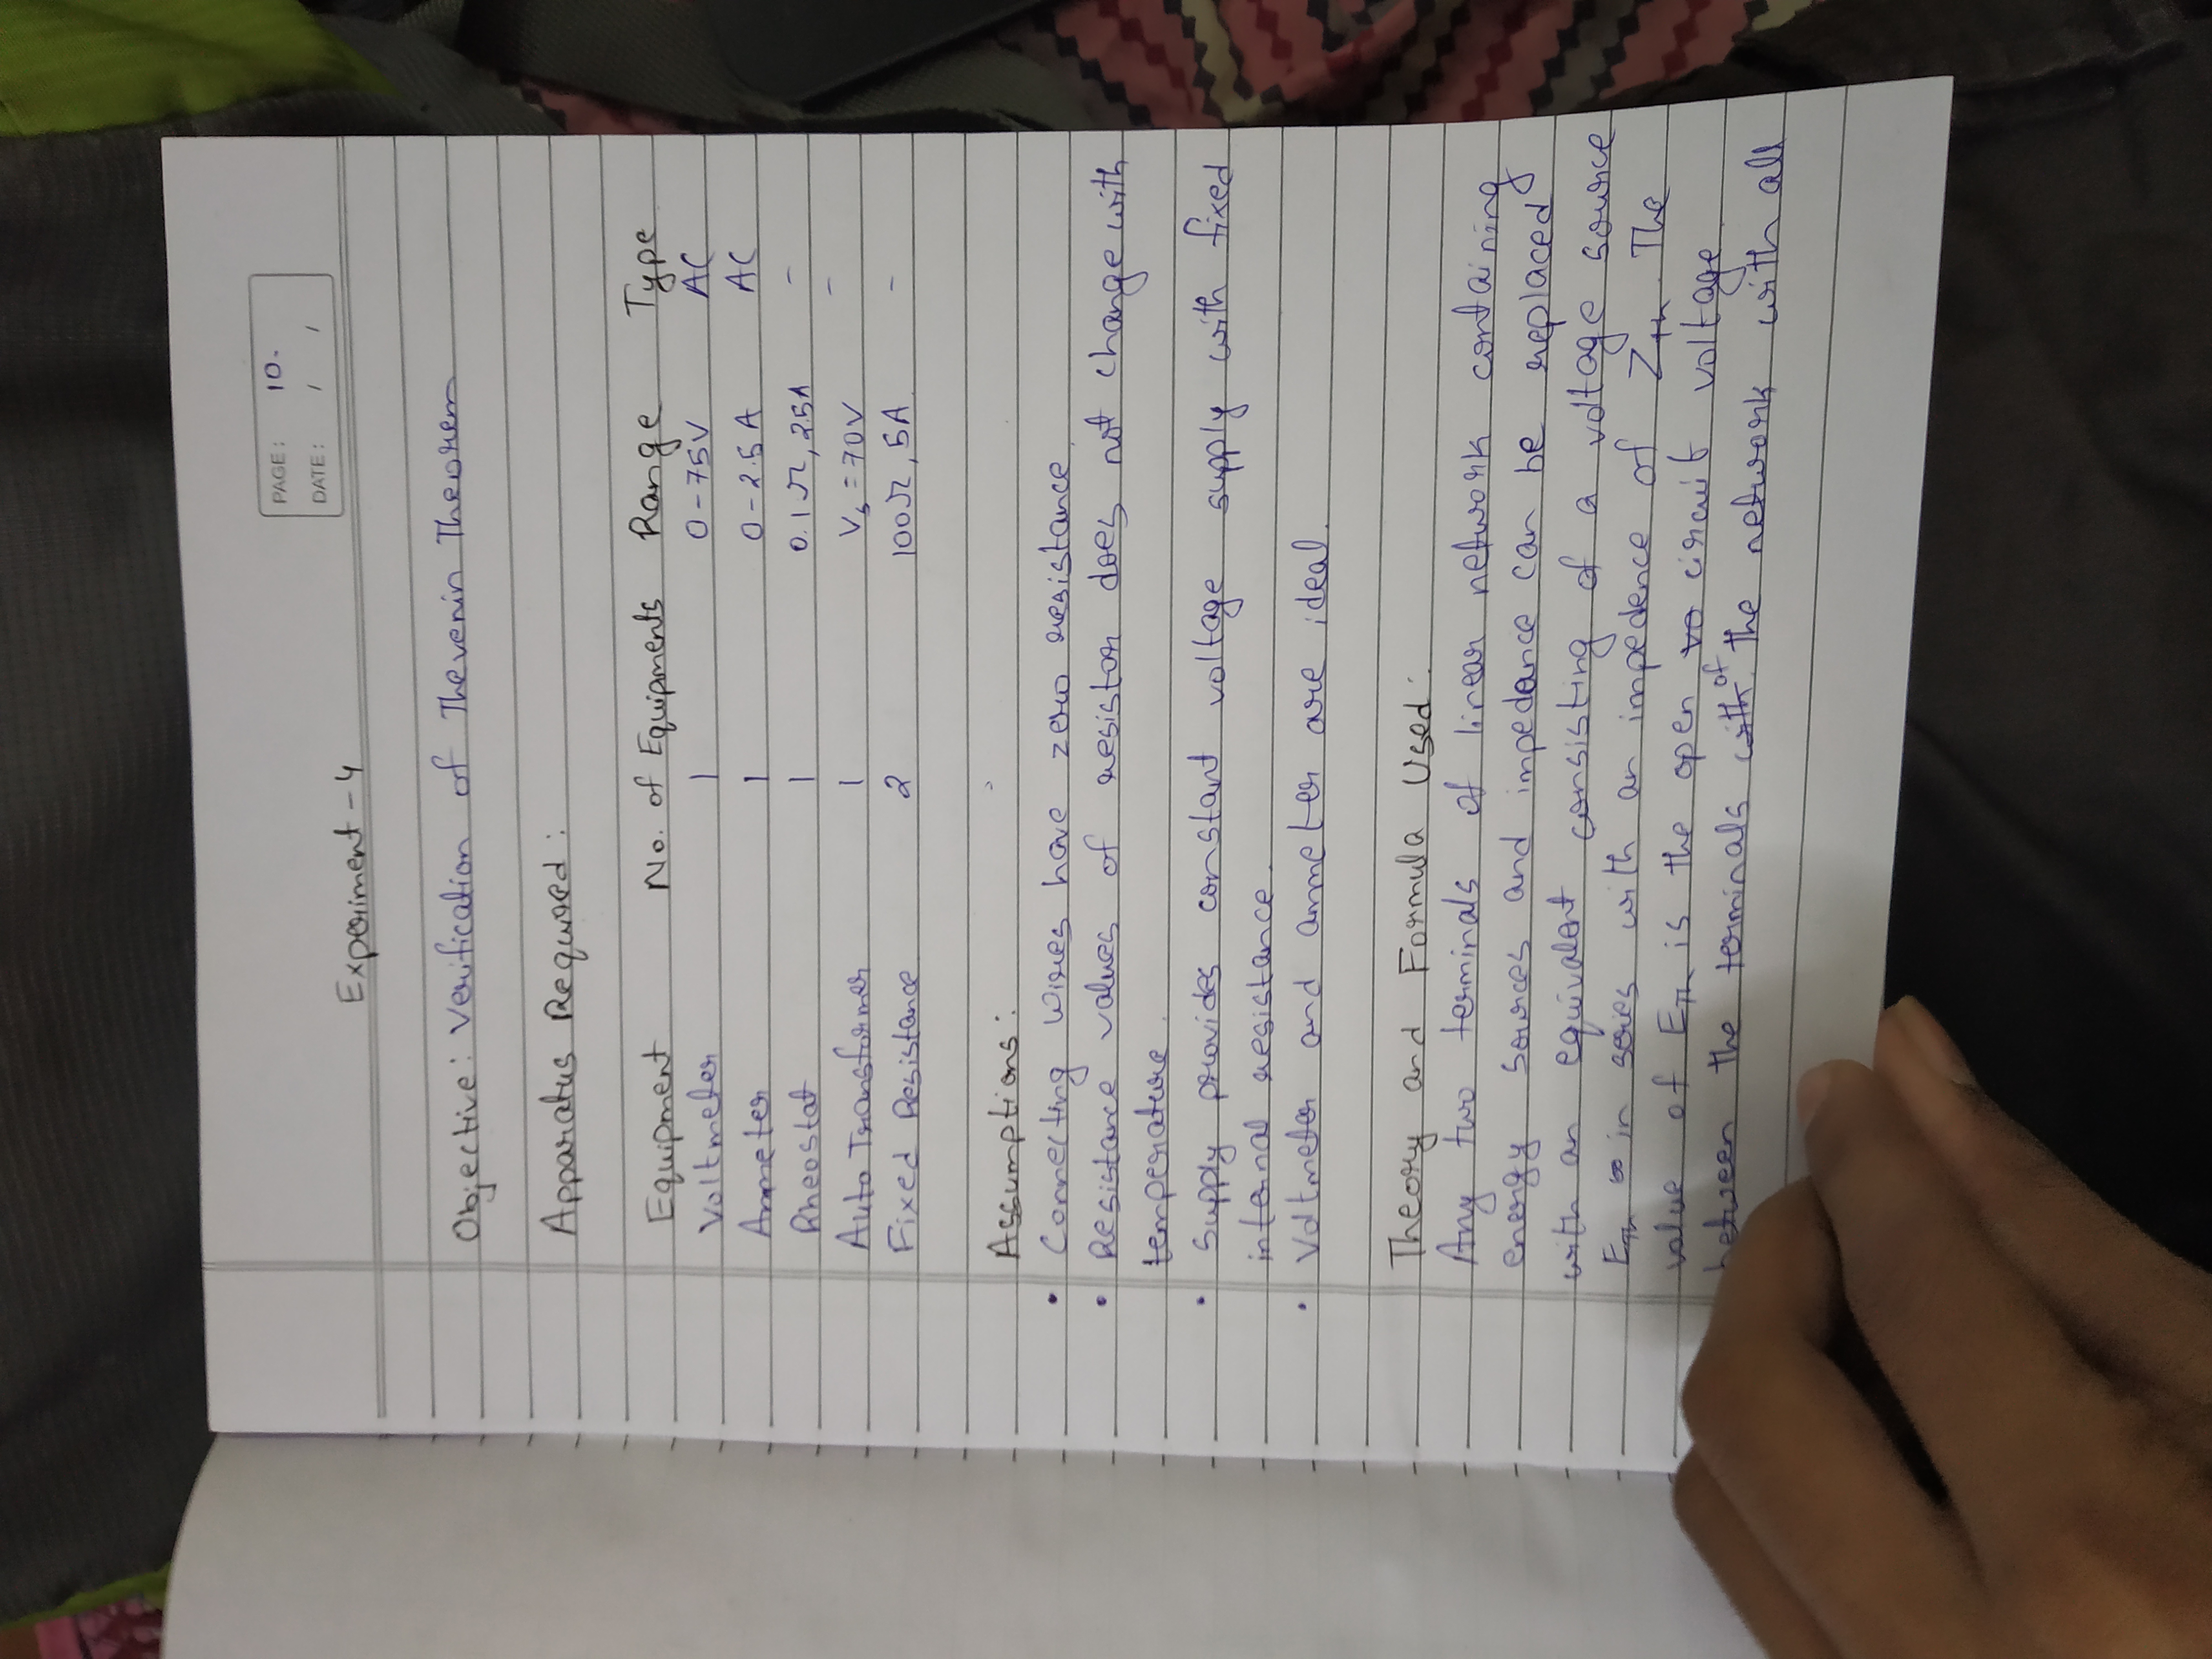 PAGE: 10.
DATE: / /
Experiment - 4
Objective: Verification of Thevenin Theorem
Apparatus Required:
Equipment No. of Equipments Range Type
Voltmeter 1 0-75V AC
Ammeter 1 0-2.5A AC
Rheostat 1 0.1Ω, 2.5A -
Auto Transformer 1 Vs = 70V -
Fixed Resistance 2 100Ω, 5A. -
Assumptions:
• Connecting wires have zero resistance.
• Resistance values of resistor does not change with
temperature.
• Supply provides constant voltage supply with fixed
internal resistance.
• Voltmeter and ammeter are ideal.
Theory and Formula Used:
Any two terminals of linear network containing
energy sources and impedance can be replaced
with an equivalent consisting of a voltage source
ETh in series with an impedence of Zth. The
value of ETh is the open circuit voltage
between the terminals of the network with all